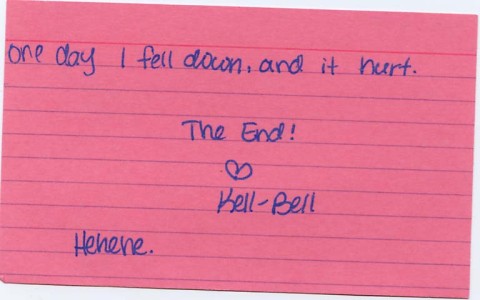 one day I fell down, and it hurt.
The End!
♡
Kell-Bell
Hehehe.